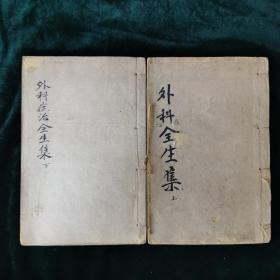 外科全生集
上
外科症治全生集
下